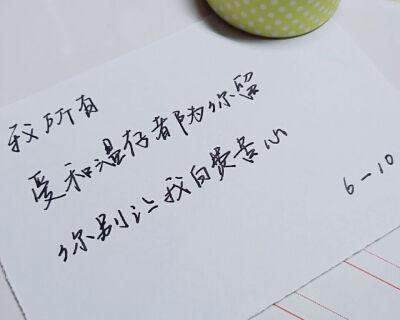 我所有
爱和温存都为你留
你别让我白费苦心
6-10